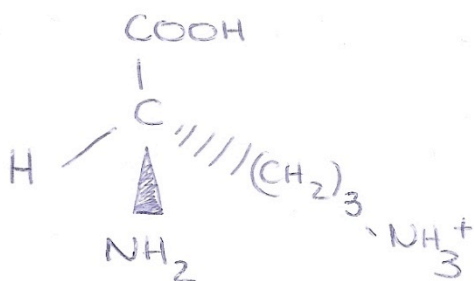 COOH
C
H
(CH₂)₃
NH₃⁺
NH₂